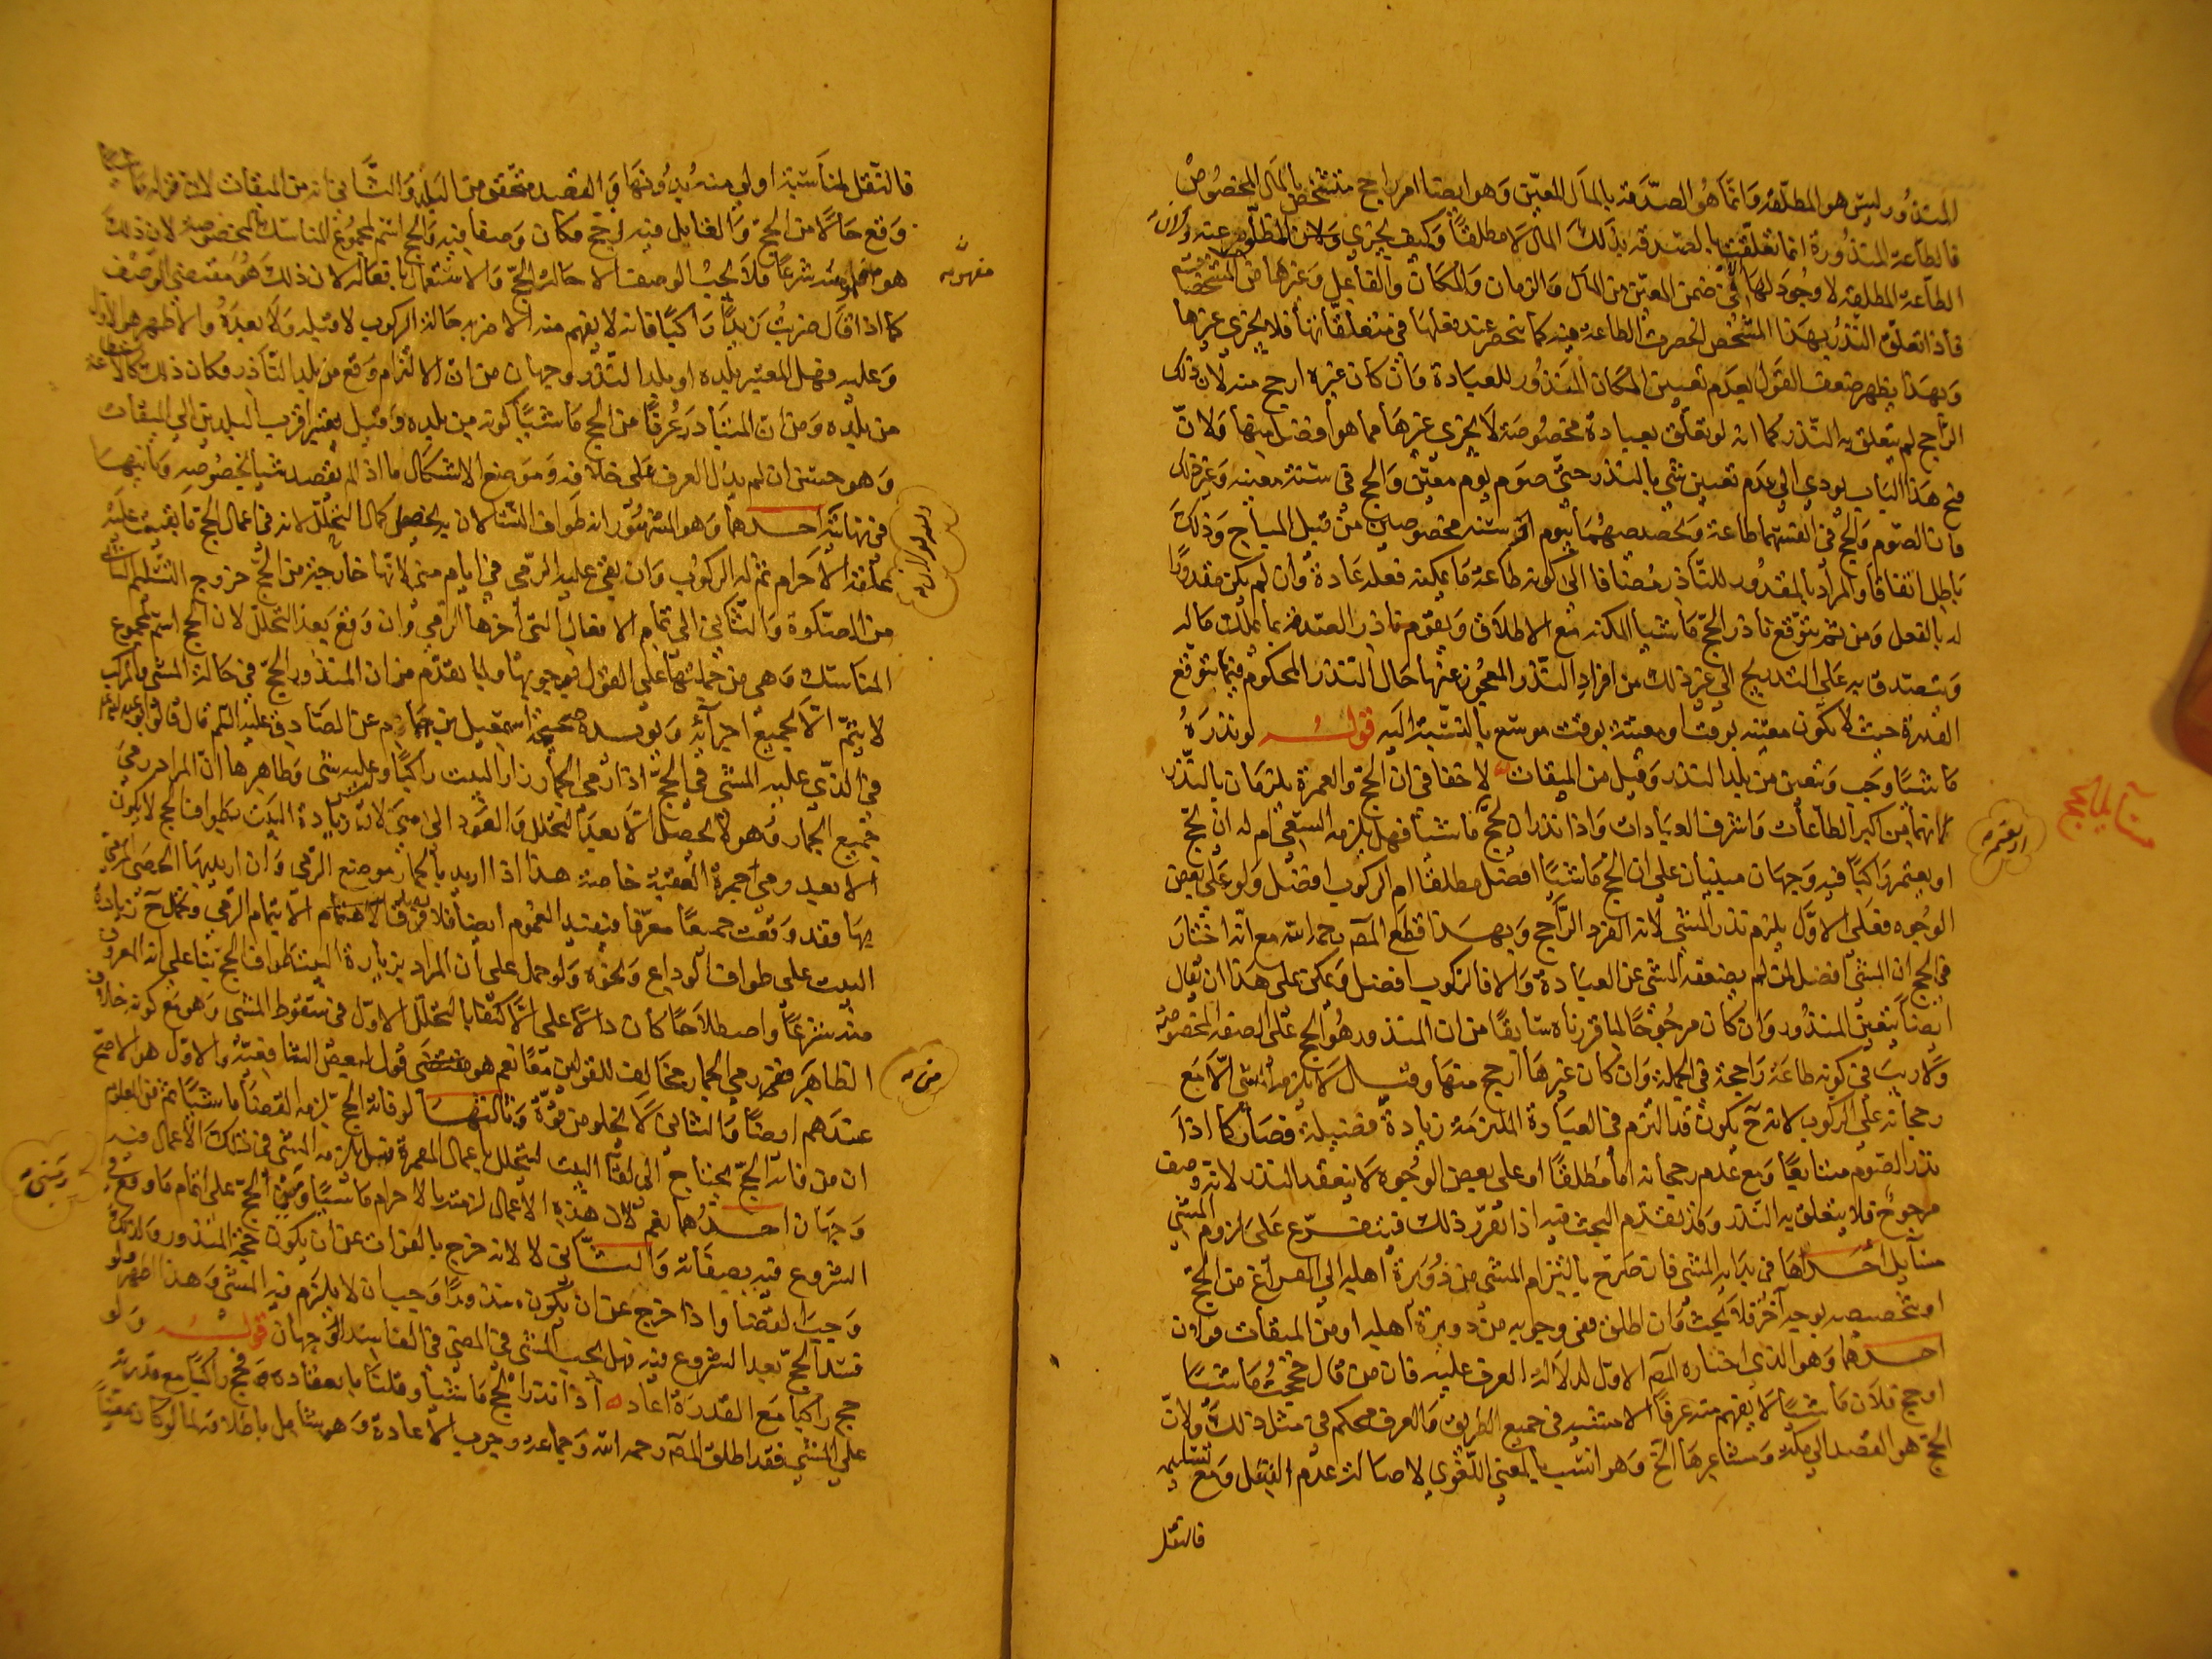 المنذور ليس هو المطلقة وانما هو الصدقة بالمال المعين وهو ايضا امر راجح متشخص بالمال المخصوص
فالطاعة المنذورة انما تعلقت بالصدقة بذلك المال لا مطلقا وكيف يجزي
الطاعة المطلقة لا وجود لها الا في ضمن المعين من المال والزمان والمكان والفاعل وغيرها من المشخصات
فاذا تعلق النذر بهذا المشخص انحصرت الطاعة فيه كما ينحصر عند فعلها في متعلقاتها فلا يجزي غيرها
وبهذا يظهر ضعف القول بعدم تعيين المكان المنذور للعبادة وان كان غيره ارجح منه لان ذلك
الراجح لم يتعلق به النذر كما انه لو تعلق بعبادة مخصوصة لا يجزي غيرها مما هو افضل منها ولان
فتح هذا الباب يودي الى عدم تعيين شي بالنذر حتى صوم يوم معين والحج في سنة معينه وغير ذلك
فان الصوم والحج في انفسهما طاعة وتخصيصهما بيوم او سنه مخصوصين من قبيل المباح وذلك
باطل اتفاقا والمراد بالمقدور للناذر مضافا الى كونه طاعة ما يمكنه فعله عادة وان لم يكن مقدورا
له بالفعل ومن ثم يتوقع ناذر الحج ماشيا المكنه مع الاطلاق ويقوم ناذر الصدقة بما يملك ماله
ويتصدق به على التدريج الى غير ذلك من افراد النذر المعجوز عنها حال النذر المحكوم فيها بتوقع
القدرة حيث لا يكون معينه بوقت او معينة بوقت موسع بالنسبة اليه قوله لو نذره
ماشيا وجب ويتعين من بلد النذر وقيل من الميقات لا خفا في ان الحج والعمرة يلزمان بالنذر
لانهما من اكبر الطاعات واشرف العبادات واذا نذر ان يحج ماشيا فهل يلزمه السعي ام له ان يحج
او يعتمر راكبا فيه وجهان مبنيان على ان الحج ماشيا افضل مطلقا ام الركوب افضل ولو على بعض
الوجوه فعلى الاول يلزم نذر المشي لانه الفرد الراجح وبهذا قطع المص رحمه الله مع انه اختار
في الحج ان المشي افضل لمن لم يضعفه المشي عن العبادة والا فالركوب افضل ويمكن على هذا ان يقال
ايضا يتعين المنذور وان كان مرجوحا لما قررناه سابقا من ان المنذور هو الحج على الصفة المخصوصة
ولا ريب في كونه طاعة راجحة في الجملة وان كان غيرها ارجح منها وقيل لا يلزمه المشي الا مع
رجحانه على الركوب لانه ح يكون قد التزم في العبادة الملتزمة زيادة فضيلة فصار كما اذا
نذر الصوم متتابعا ومع عدم رجحانه اما مطلقا او على بعض الوجوه لا ينعقد النذر لانه وصف
مرجوح فلا يتعلق به النذر وقد تقدم البحث فيه اذا تقرر ذلك فيتفرع على لزوم المشي
مسايل احداها في بدايه المشي فان صرح بالتزام المشي من دويرة اهله الى الفراغ من الحج
او بتخصيصه بوجه آخر فلا بحث وان اطلق ففي وجوبه من دويرة اهله او من الميقات قولان
احدهما وهو الذي اختاره المص الاول لدلالة العرف عليه فان من قال حججت ماشيا
او حج فلان ماشيا لا يفهم منه عرفا الا مشيه في جميع الطريق والعرف محكم في مثل ذلك ولان
الحج هو القصد الى مكة ومشاعرها الخ وهو انسب بالمعنى اللغوي لاصالة عدم النقل ومع تسليمه
فالنقل
كتاب الحج
او يعتمر
فالنقل لمناسبة اولى منه بدونها والقصد متحقق من البلد والثاني انه من الميقات لان قوله ماشيا
وقع حالا من الحج والعامل فيه احج فكان وصفا فيه والحج اسم لمجموع المناسك المخصوصة لان ذلك
هو مفهومه شرعا فلا يجب الوصف الا حالة الحج والاشتغال بافعاله لان ذلك هو مقتضى الوصف
كما اذا قال ضربت زيدا راكبا فانه لا يفهم منه الا ضربه حالة الركوب لا قبله ولا بعده والاظهر هو الاول
وعليه فهل المعتبر بلده او بلد النذر وجهان من ان الالتزام وقع من بلد الناذر فكان ذلك
من بلده ومن ان المتبادر عرفا من الحج ماشيا كونه من بلده وقيل يعتبر اقرب البلدين الى الميقات
وهو حسن ان لم يدل العرف على خلافه وموضع الاشكال ما اذا لم يقصد شيا بخصوصه وثانيها
في نهايته احدهما وهو المشهور انه طواف النسا لان به يحصل كمال التحلل لانه في اعمال الحج ما بقيت عليه
علقة الاحرام ثم له الركوب وان بقي عليه الرمي في ايام منى لانها خارجة من الحج خروج التسليم الثاني
من الصلوة والثاني الى تمام الافعال التي اخرها الرمي وان وقع بعد التحلل لان الحج اسم لمجموع
المناسك وهي من جملتها على القول بوجوبها ولما تقدم من ان المنذور الحج في حالة المشي والمركب
لا يتم الا بجميع اجزائه ويويده صحيحة اسمعيل بن همام عن الصادق عليه السلم قال قال ابو عبد الله
في الذي عليه المشي في الحج اذا رمى الجمار زار البيت راكبا وليس عليه شي وظاهرها ان المراد رمي
جميع الجمار وهو لا يحصل الا بعد التحلل والعود الى منى لان زيادة البيت بطواف الحج لا يكون
الا بعد رمي جمرة العقبة خاصة هذا اذا اريد بالجمار موضع الرمي وان اريد بها الحصى
بها فقد وقعت جمعا معرفا فيفيد العموم ايضا فلا يتم الا بتمام الرمي ويحمل ح زيارة
البيت على طواف الوداع ونحوه ولو حمل على ان المراد بزيارة البيت طواف الحج بنا على انه المعروف
منه شرعا واصطلاحا كان دالا على الاكتفا بالتحلل الاول في سقوط المشي وهو مع كونه خلاف
الظاهر في رمي الجمار مخالف للقولين معا نعم هو قول لبعض الشافعية والاول هو الاصح
عندهم ايضا والثاني لا يخلو من قوة وثالثها لو فاته الحج لزمه القضا ماشيا ثم من المعلوم
ان من فاته الحج يحتاج الى لقاء البيت ليتحلل باعمال العمرة فهل يلزمه المشي في تلك الاعمال فيه
وجهان احدهما نعم لان هذه الاعمال لزمته بالاحرام ماشيا على اتمام ما وقع
الشروع فيه بصفاته والثاني لا لانه خرج بالفوات عن ان يكون حجه المنذور ولذلك
وجب القضا واذا خرج عن ان يكون منذورا وجب ان لا يلزم فيه المشي وهذا اظهر ولو
فسد الحج بعد الشروع فيه فهل يجب المشي في المضي في الفاسد وجهان قوله ولو
حج راكبا مع القدرة اعاد اذا نذر الحج ماشيا وقلنا بانعقاده فحج راكبا مع قدرته
على المشي فقد اطلق المص رحمه الله وجماعة وجوب الاعادة وهو شامل باطلاقه لما لو كان معينا
مفهومه